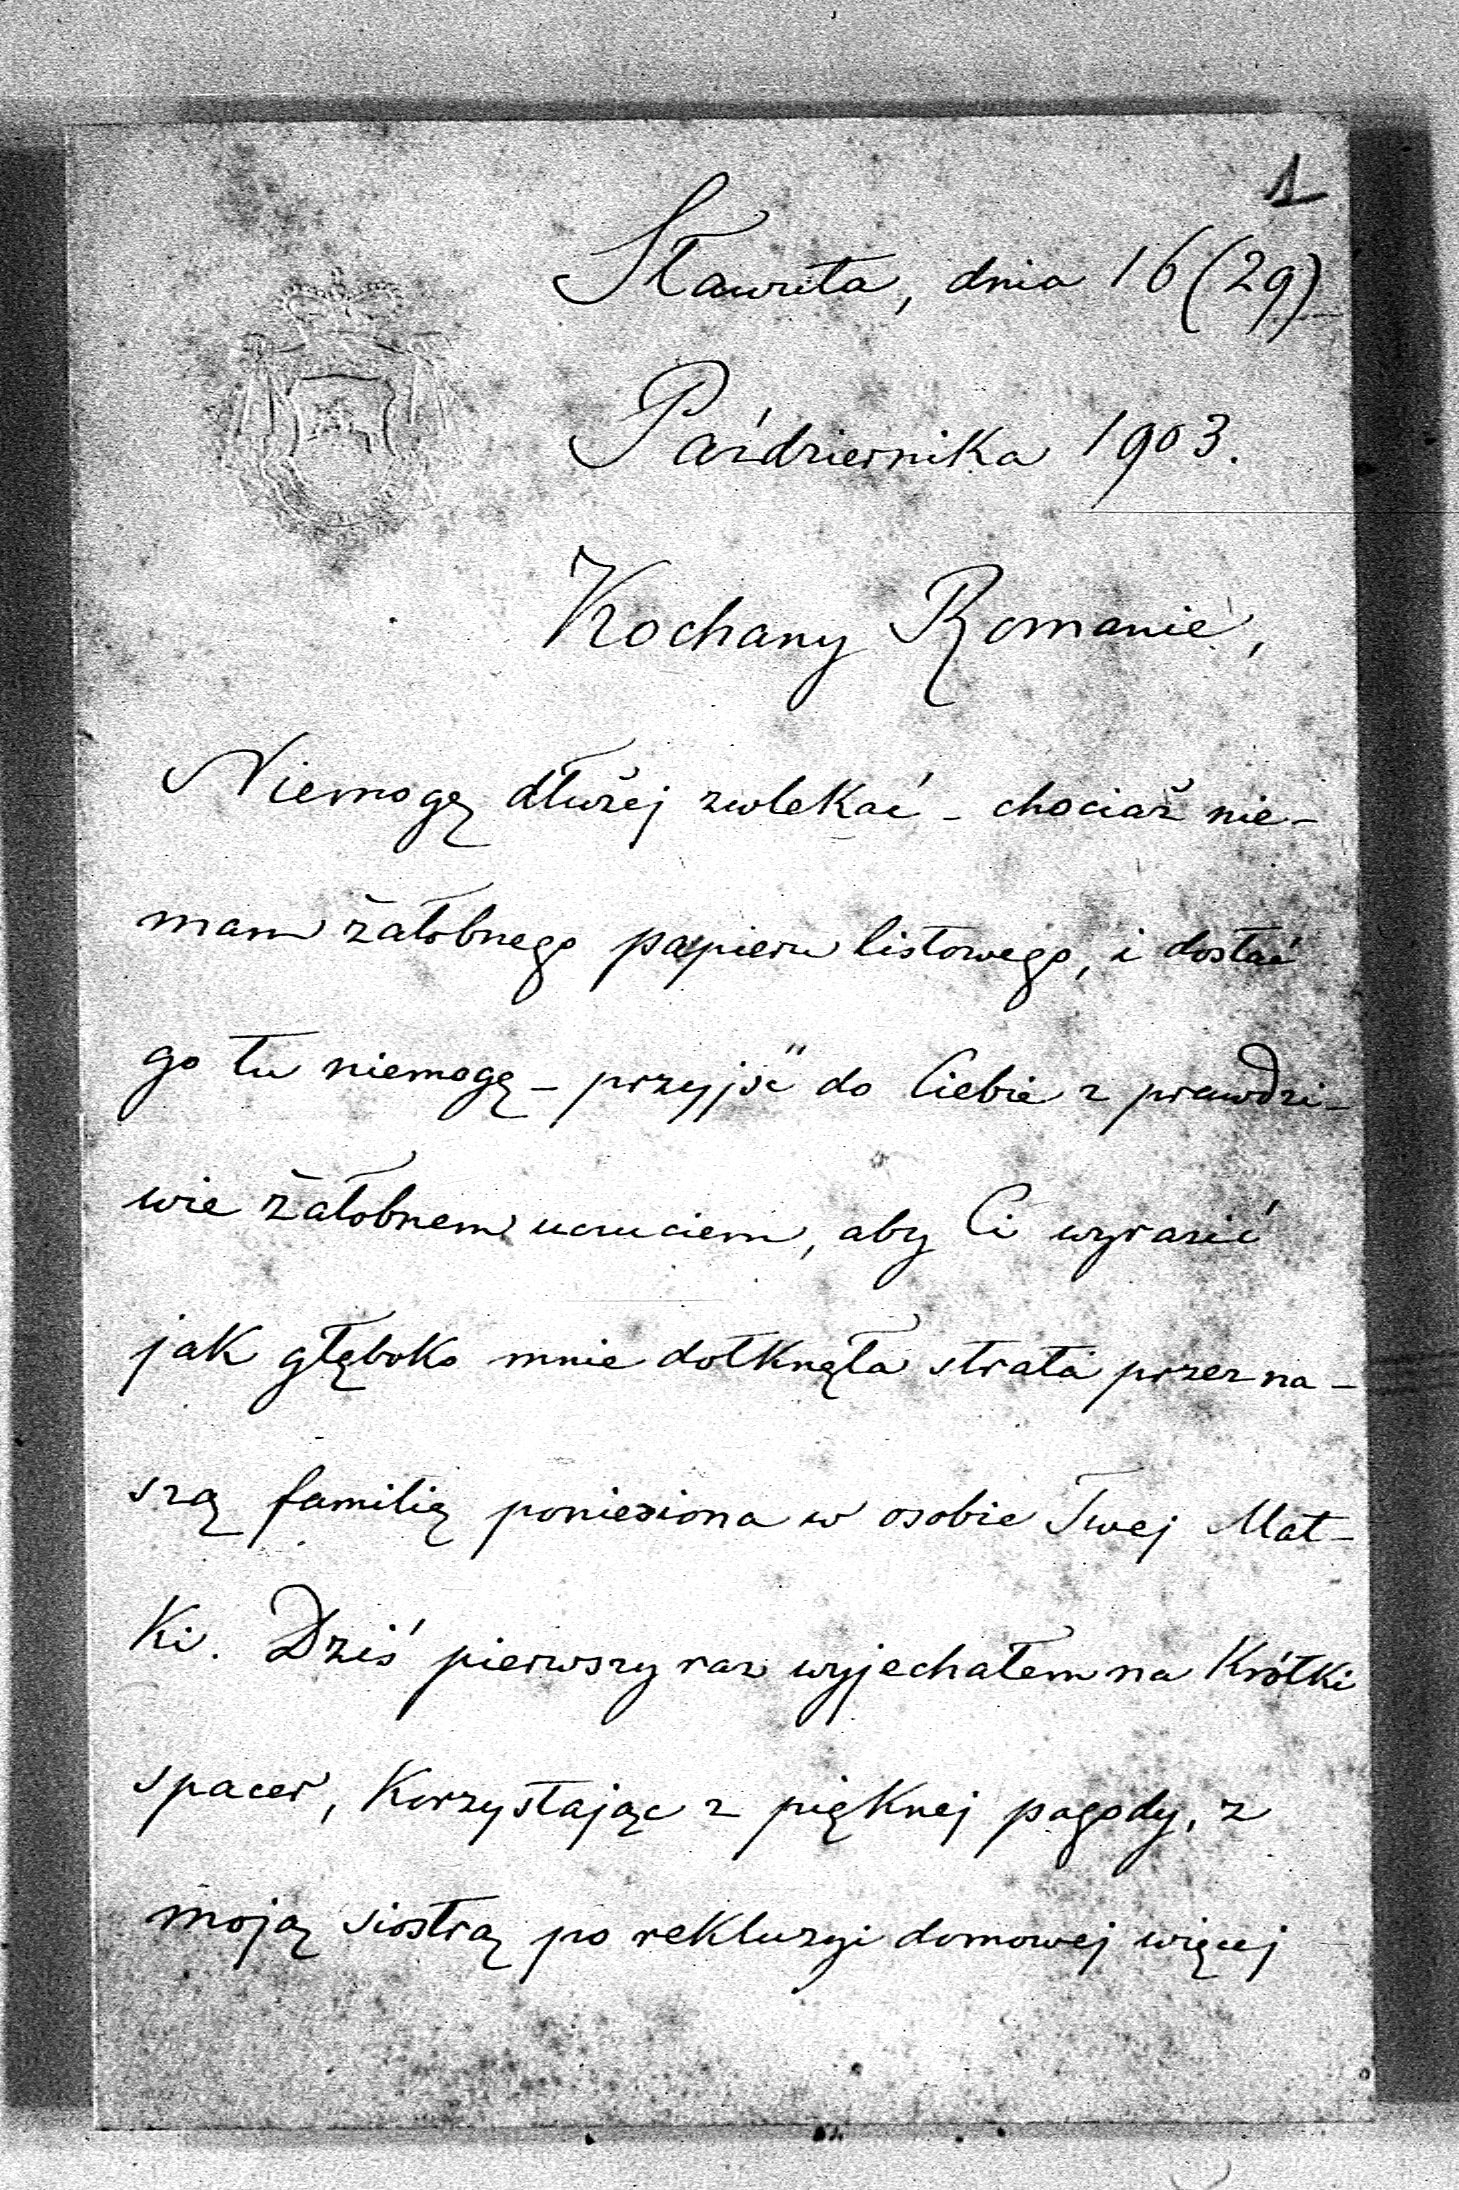 1
Sławuta, dnia 16 (29)
Października 1903.
Kochany Romanie,
Niemogę dłużej zwlekać – chociaż nie-
mam żałobnego papieru listowego, i dostać
go tu niemogę – przyjść do Ciebie z prawdzi-
wie żałobnem uczuciem, aby Ci wyrazić
jak głęboko mnie dotknęła strata przez na-
szą familię poniesiona w osobie Twej Mat-
ki. Dziś pierwszy raz wyjechałem na krótki
spacer, korzystając z pięknej pogody, z
moją siostrą po rekluzyi domowej więcej